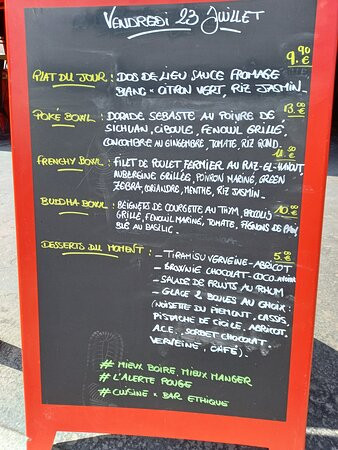 VENDREDI 23 JUILLET
9.90 €
PLAT DU JOUR : DOS DE LIEU SAUCE FROMAGE
BLANC & CITRON VERT, RIZ JASMIN.
13.00 €
POKÉ BOWL : DORADE SEBASTE AU POIVRE DE
SICHUAN, CIBOULE, FENOUIL GRILLÉ,
CONCOMBRE AU GINGEMBRE, TOMATE, RIZ ROND.
FRENCHY BOWL : FILET DE POULET FERMIER AU RAZ-EL-HANOUT,
AUBERGINE GRILLÉE, POIVRON MARINÉ, GREEN
ZEBRA, CORIANDRE, MENTHE, RIZ JASMIN.
BUDDHA BOWL : BEIGNETS DE COURGETTE AU THYM, BROCOLIS 10.€
GRILLÉ, FENOUIL MARINÉ, TOMATE, PIGNONS DE PIN,
BLÉ AU BASILIC.
DESSERTS DU MOMENT : 5.€
- TIRAMISU VERVEINE-ABRICOT
- BROWNIE CHOCOLAT-COCO
- SALADE DE FRUITS AU RHUM
- GLACE 2 BOULES AU CHOIX :
(NOISETTE DU PIEMONT, CASSIS,
PISTACHE DE CICILE, ABRICOT,
A.C.E., SORBET CHOCOLAT,
VERVEINE, CAFÉ).
# MIEUX BOIRE, MIEUX MANGER
# L'ALERTE ROUGE
# CUISINE & BAR ETHIQUE